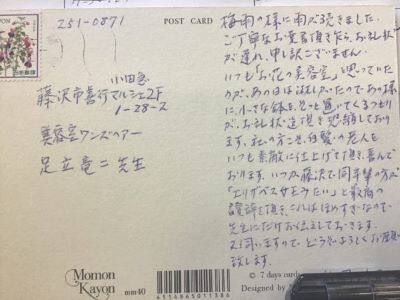 251-0871
POST CARD
小田急
藤沢市善行マルシェ2F
1-28-2
美容室ワンズヘアー
足立竜二先生
梅雨の様に雨が続きました。
ご丁寧なお葉書頂き乍ら、お礼状
が遅れ、申し訳ございません。
いつも「お花の美容室」と思ってい
が、あの日は淋しかったのであの様
に小さな鉢を、そっと置いてくるつもり
が、お礼状迄頂き恐縮しており
ます。私の方こそ、白髪の老人を
いつも素敵に仕上げて頂き、喜んで
おります。いつか藤沢で同年輩の方が
「エリザベス女王みたい」と最高の
讃辞を頂き、これはほめすぎなので
先生にだけお伝えしておきます。
又伺いますので、どうぞよろしくお願い
致します。
Momon
Kayon
mm40
4514865011386
© 7 days cards
Designed by